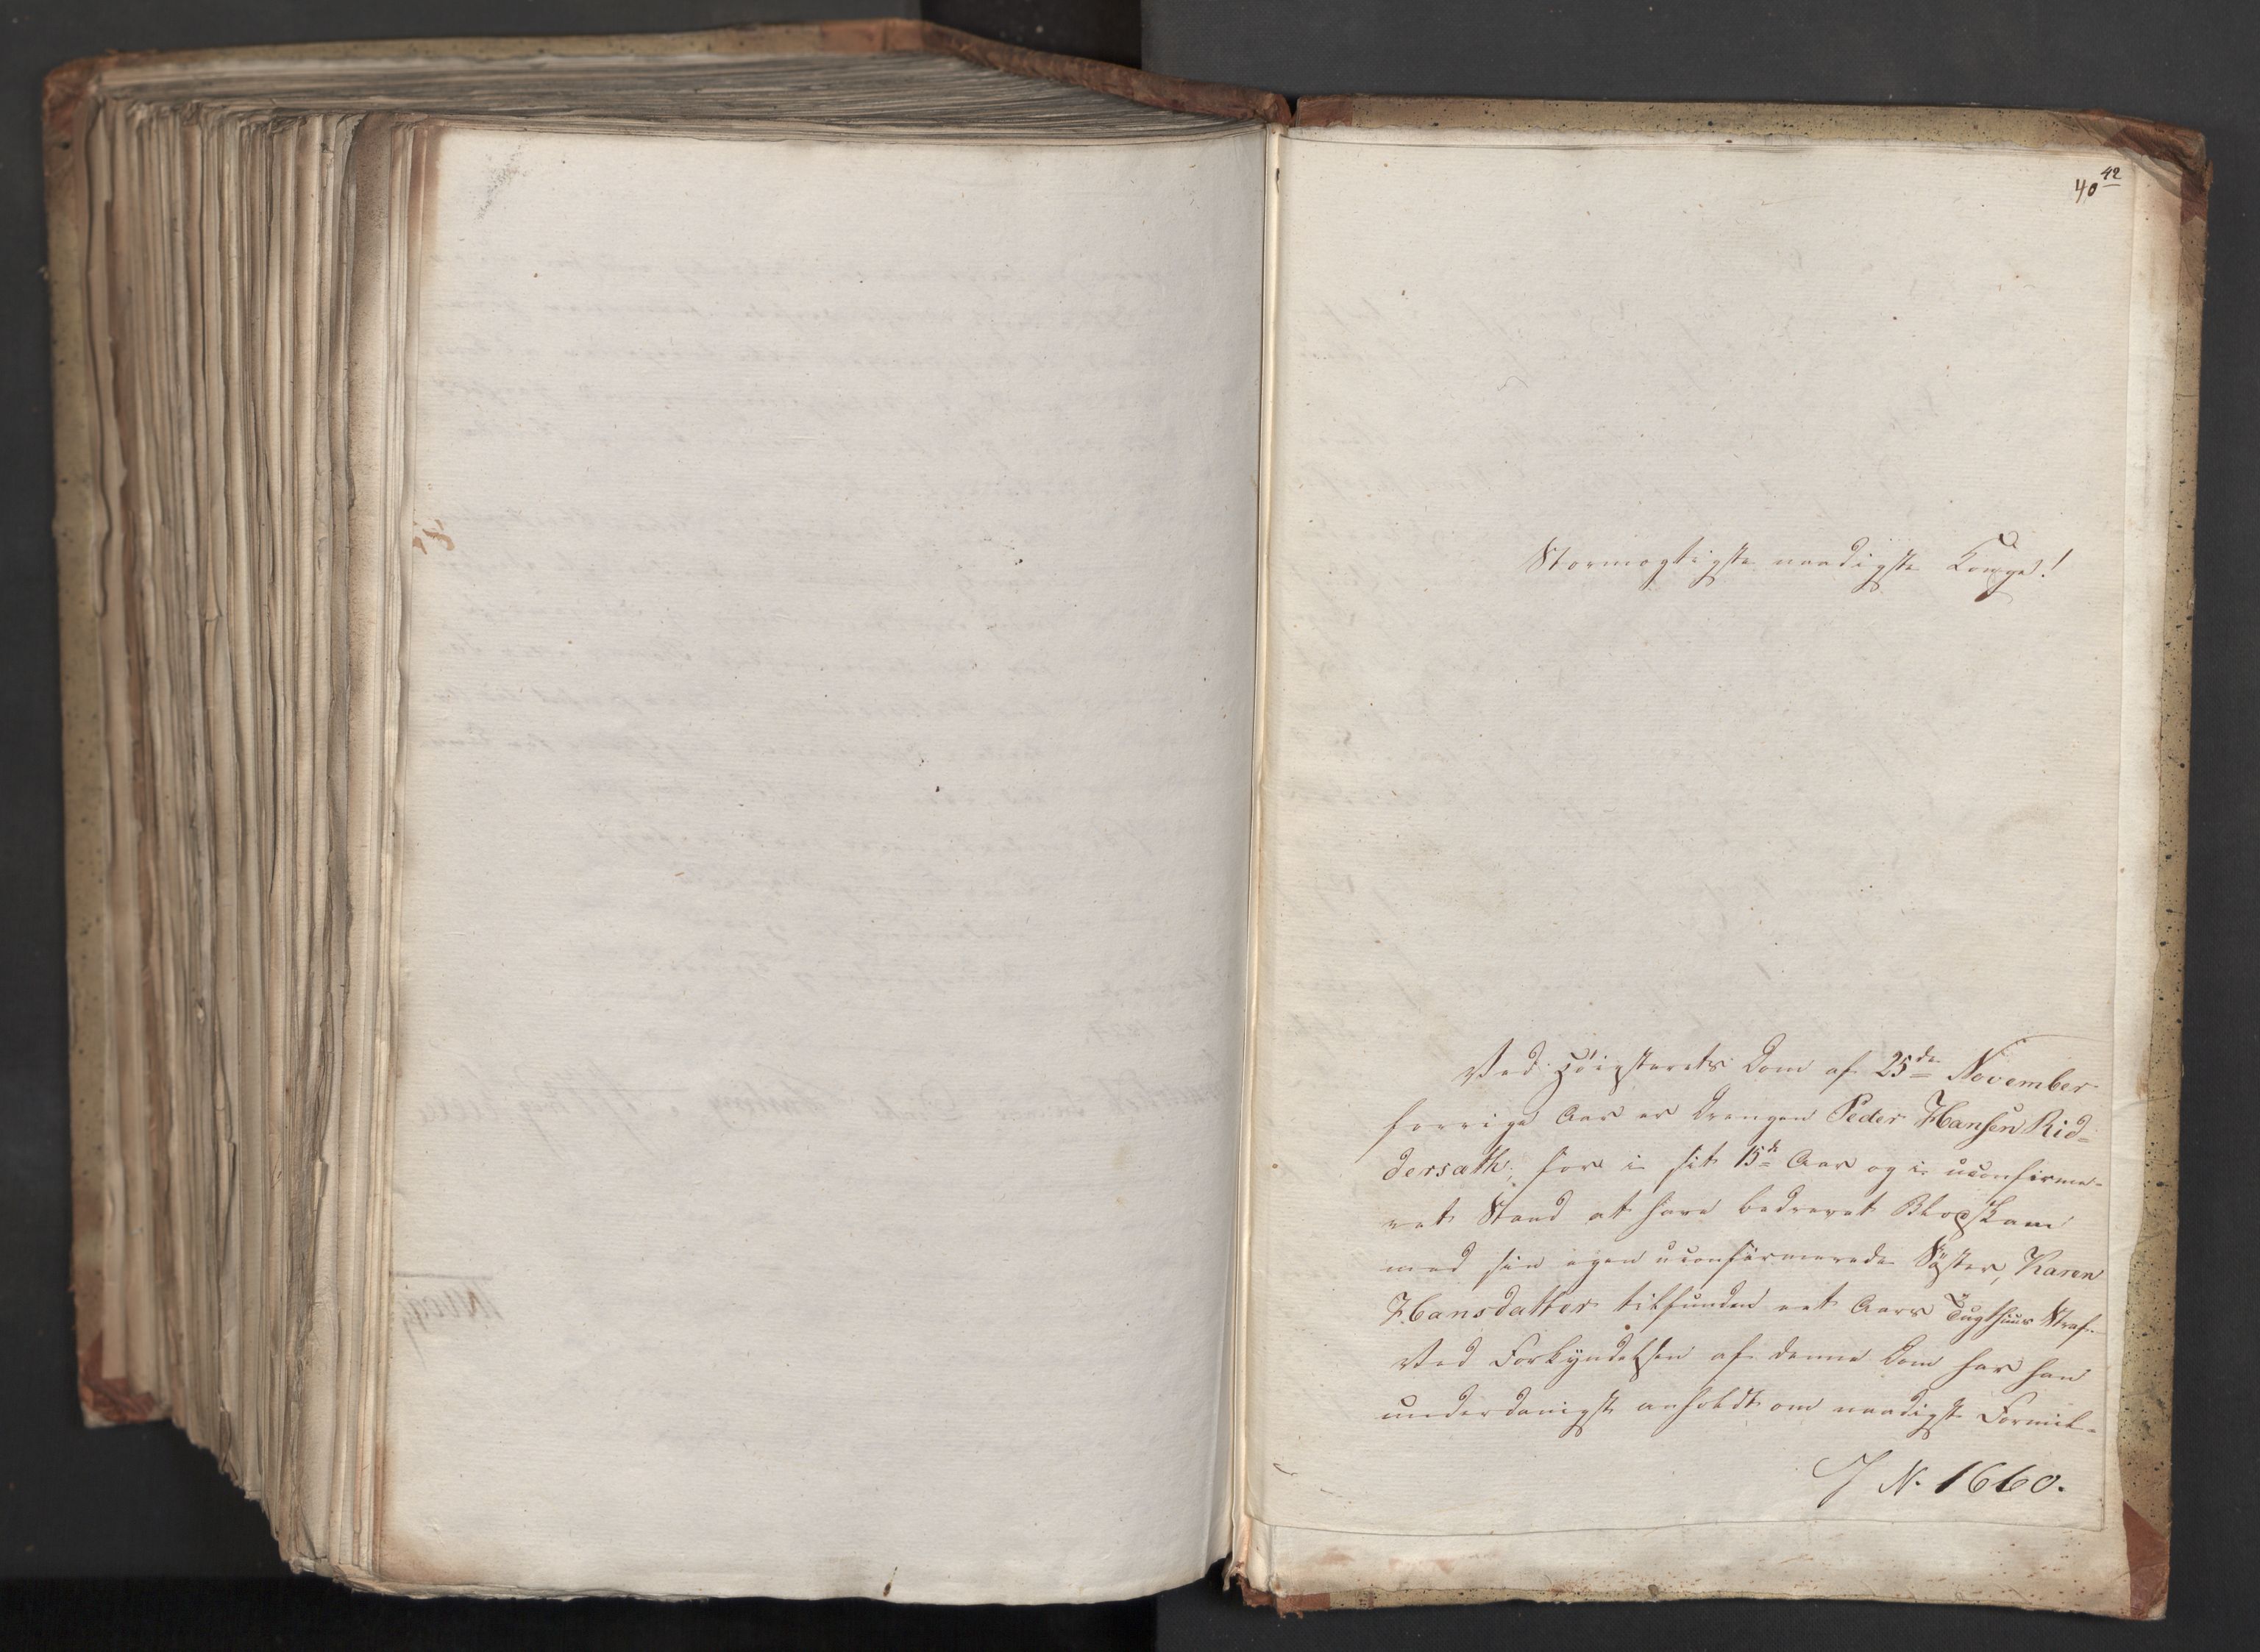 40 42
Stormægtigste naadigste Konge!
Ved Höiesterets Dom af 25de November
forrige Aar er Drengen Peder Hansen Rid-
dersæth, for i sit 15de Aar og i uconfirme-
ret Stand at have bedrevet Blodskam
med sin egen uconfirmerede Söster, Karen
Hansdatter tilfunden eet Aars Tugthuus Straf.
Ved Forkyndelsen af denne Dom har han
underdanigst anholdt om naadigst Formil-
J N. 1660.